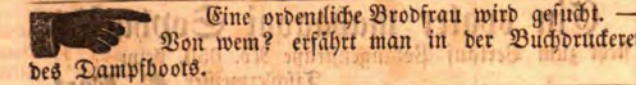 Eine ordentliche Brodfrau wird gesucht. —
Von wem? erfährt man in der Buchdruckere
des Dampfboots.